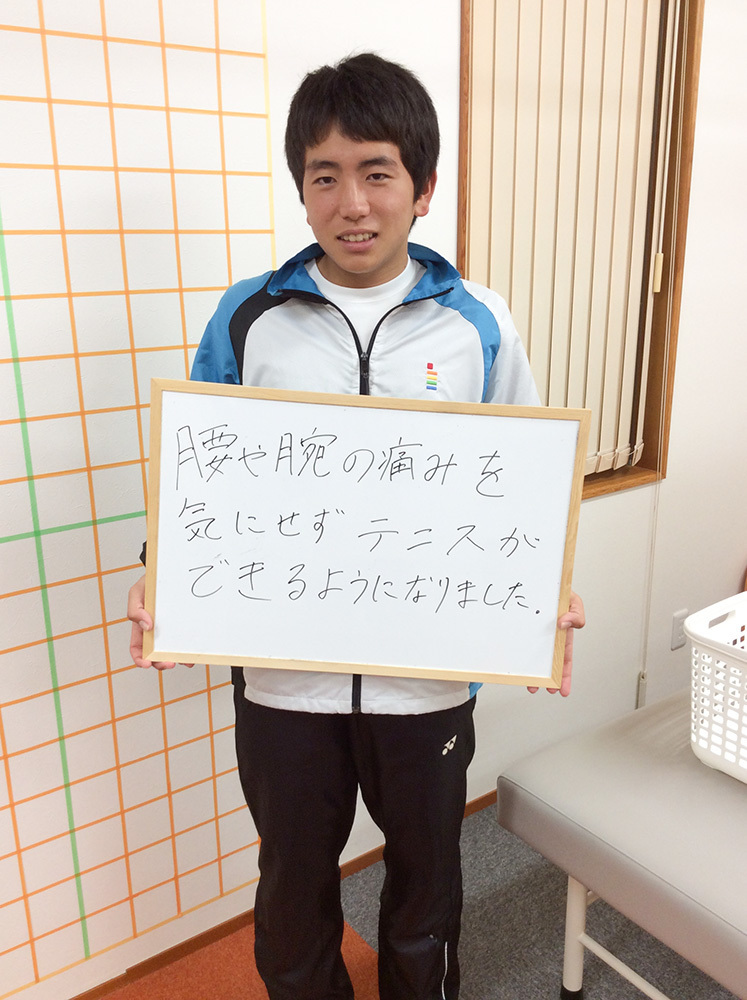 腰や腕の痛みを
気にせずテニスが
できるようになりました.